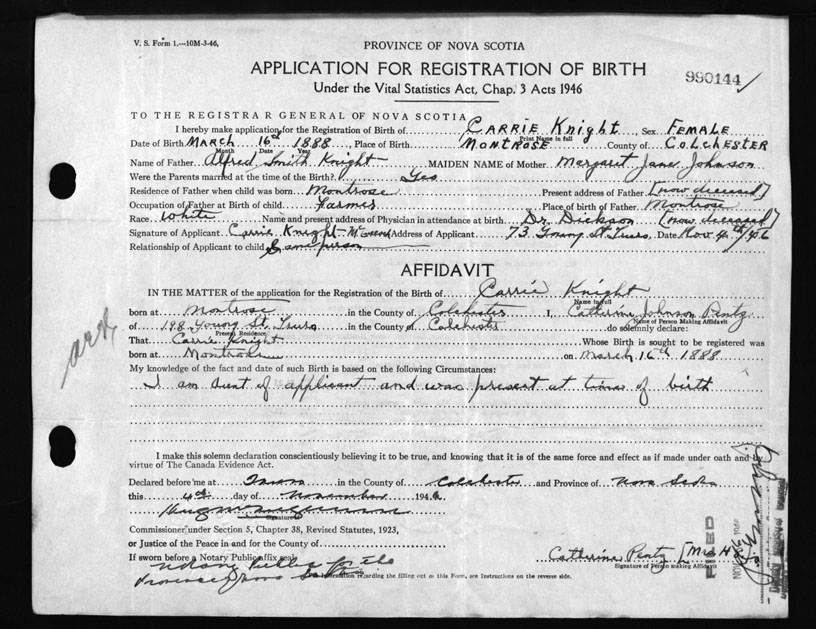 V. S. Form 1.—10M-3-46.
PROVINCE OF NOVA SCOTIA
APPLICATION FOR REGISTRATION OF BIRTH
990144
Under the Vital Statistics Act, Chap. 3 Acts 1946
TO THE REGISTRAR GENERAL OF NOVA SCOTIA
I hereby make application for the Registration of Birth of CARRIE Knight, Sex FEMALE
Print Name in full
Date of Birth MARCH 16th 1888, Place of Birth MONTROSE County of COLCHESTER
Month Date Year
Name of Father Alfred Smith Knight MAIDEN NAME of Mother Margaret Jane Johnson
Were the Parents married at the time of the Birth? Yes
Residence of Father when child was born Montrose Present address of Father [now deceased]
Occupation of Father at Birth of child Farmer Place of birth of Father Montrose
Race White Name and present address of Physician in attendance at birth Dr. Dickson [now deceased]
Signature of Applicant Carrie Knight Address of Applicant 73 Young St. Truro. Date Nov. 4th/46
Relationship of Applicant to child Same person
AFFIDAVIT
IN THE MATTER of the application for the Registration of Birth of Carrie Knight
Name in full
born at Montrose in the County of Colchester I, Catherine Johnson Pentz
Name of Person Making Affidavit
of 198 Young St. Truro in the County of Colchester do solemnly declare:
Present Residence
That Carrie Knight Whose Birth is sought to be registered was
born at Montrose on March 16th 1888
My knowledge of the fact and date of such Birth is based on the following Circumstances:
I am Aunt of applicant and was present at time of birth
I make this solemn declaration conscientiously believing it to be true, and knowing that it is of the same force and effect as if made under oath and by
virtue of The Canada Evidence Act.
Declared before me at Truro in the County of Colchester and Province of Nova Scotia
this 4th day of November 1946
Signature
Commissioner under Section 5, Chapter 38, Revised Statutes, 1923,
or Justice of the Peace in and for the County of
If sworn before a Notary Public affix seal
Notary Public for the
Province of Nova Scotia
Catherine Pentz [Mrs H
Signature of Person making Affidavit
For information regarding the filling out of this Form, see Instructions on the reverse side.
FILED
NOV